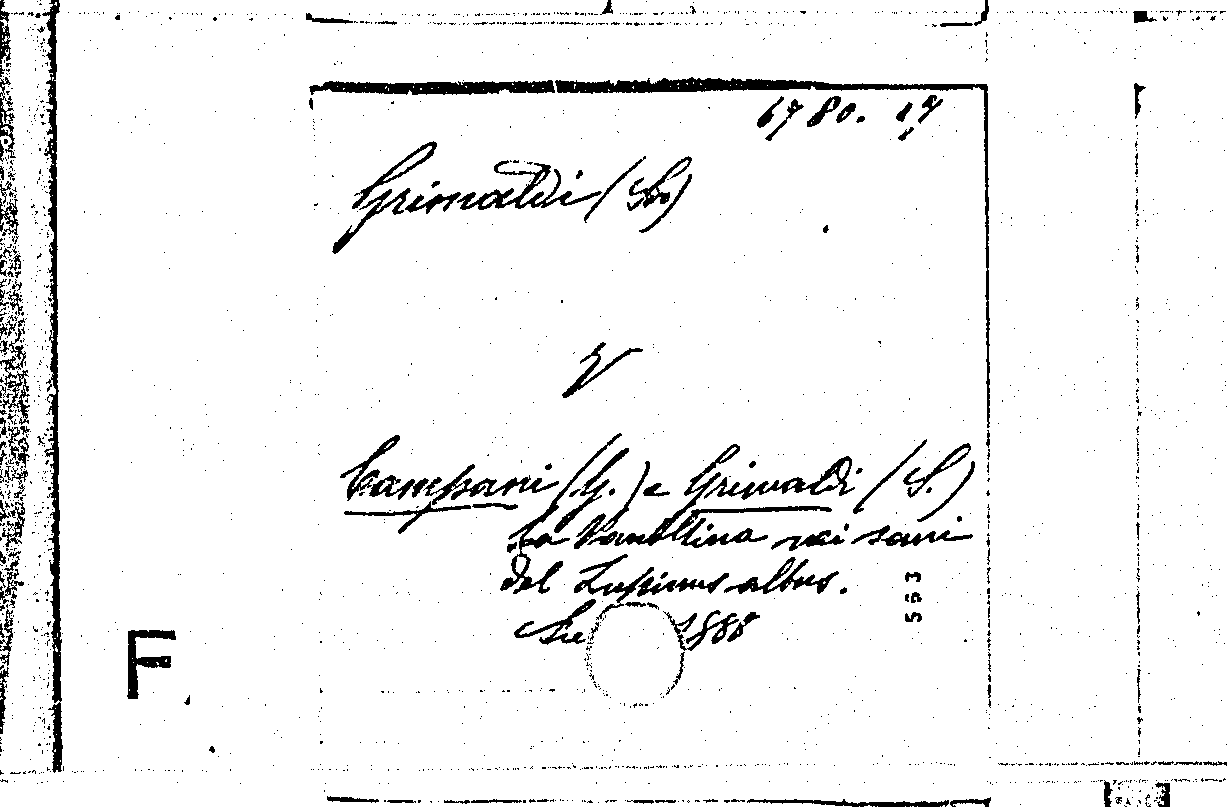 6780. 17
Grimaldi (S.)
V
Campani (G.) e Grimaldi (S.)
La Vanillina nei semi
del Lupinus albus.
Sie 1888
553
F